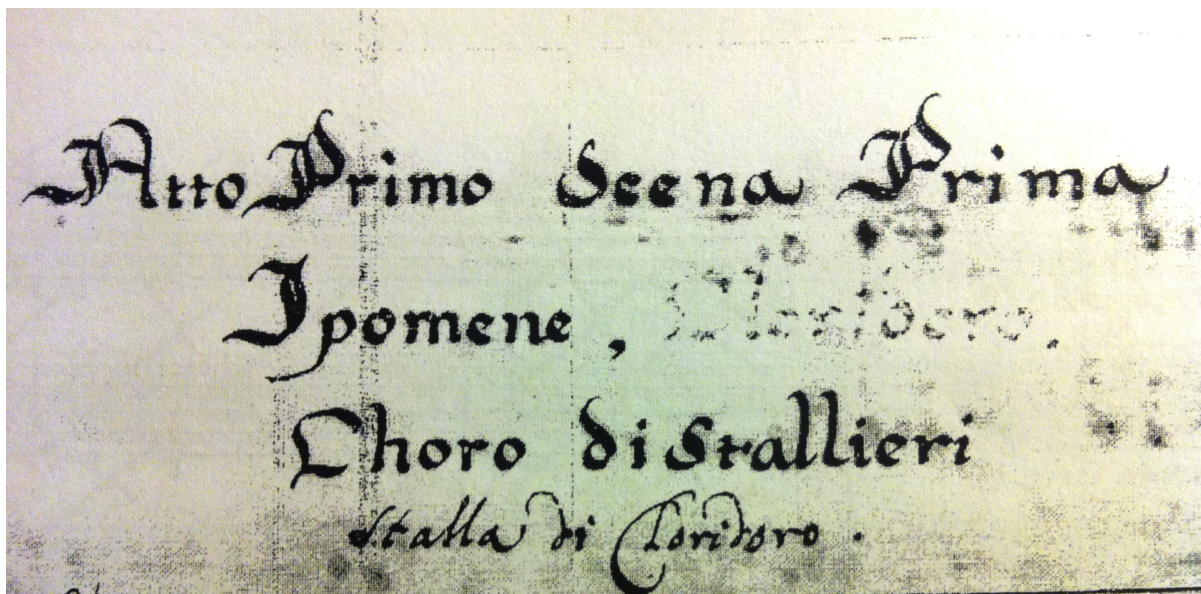 Atto Primo Scena Prima
Ipomene, Cloridoro.
Choro di Stallieri
Stalla di Cloridoro.